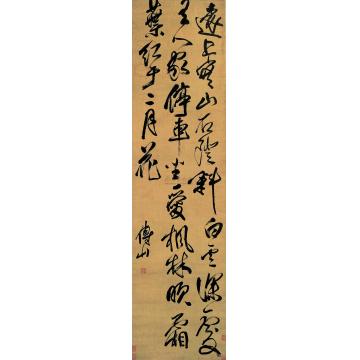 遠上寒山石磴斜白雲深處
有人家停車坐愛楓林晚霜
葉紅于二月花
傅山